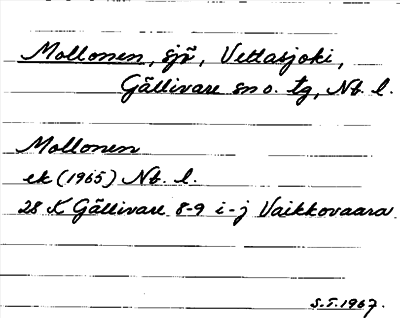 Mollonen, sjö, Vettasjoki,
Gällivare sn o. tg, Nb. l.
Mollonen
ek (1965) Nb. l.
28 K Gällivare 8-9 i-j Vaikkovaara
S.T. 1967.